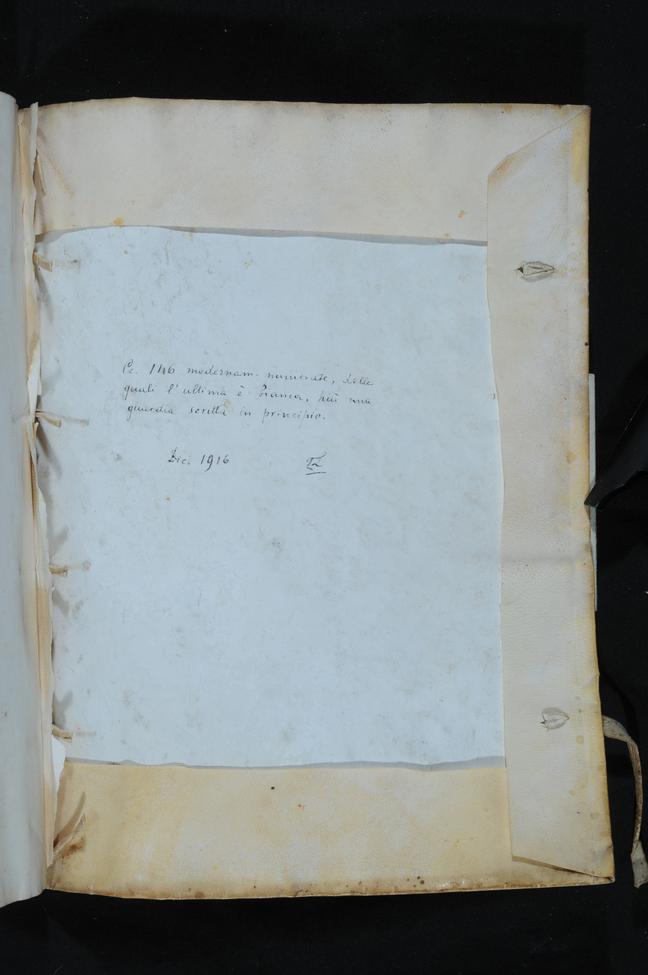 Cc. 146 modernam. numerate, delle
quali l'ultima è bianca, più una
guardia scritta in principio.
Dic. 1916